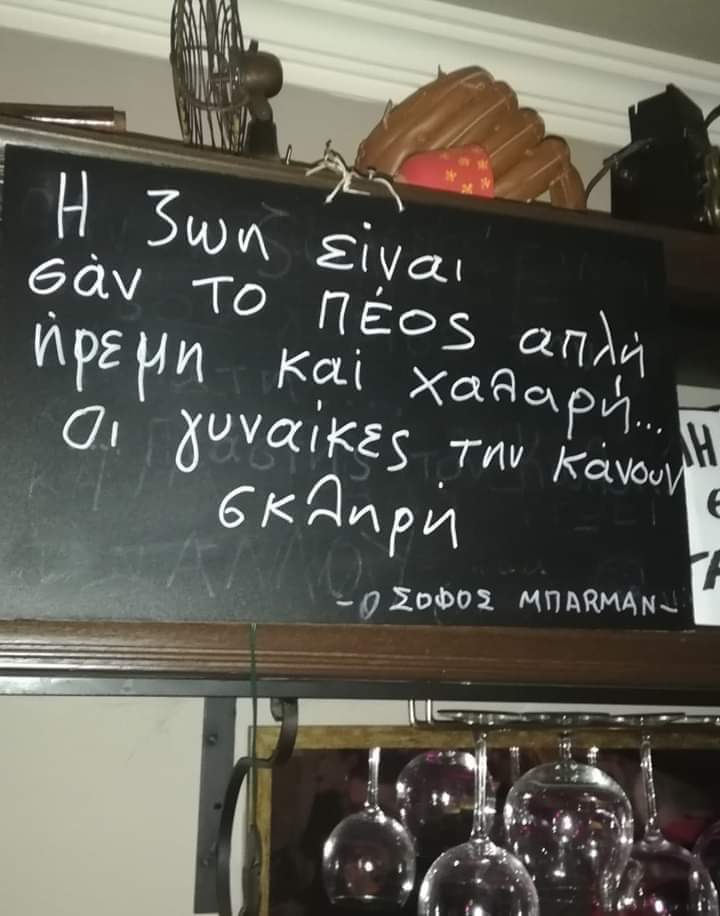 Η ζωη είναι
σάν το ΠΈΟς απλή
ήρεμη και χαλαρή...
Οι γυναίκες την κάνουν
σκληρή
-Ο ΣΟΦΟΣ ΜΠΑRΜΑΝ-